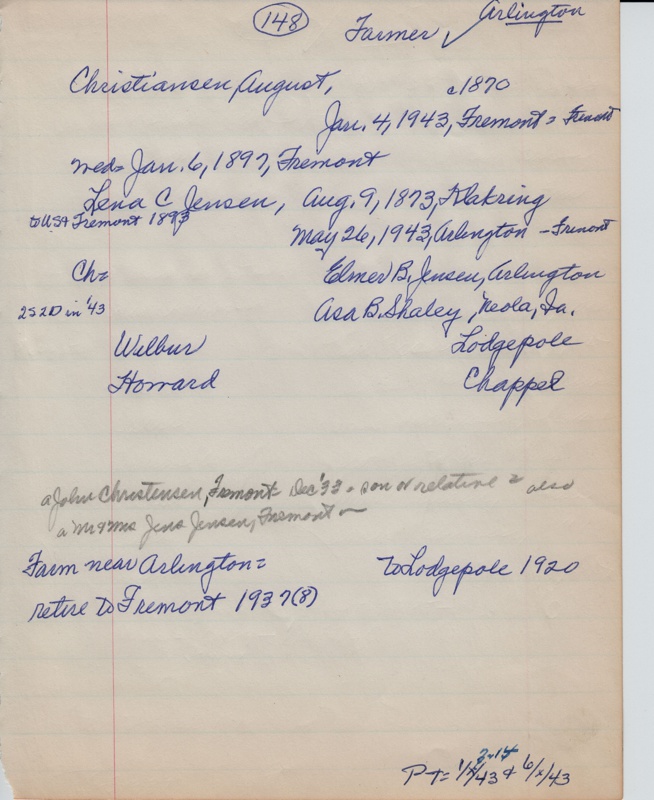 148
Farmer, Arlington
Christiansen, August, c1870
Jan. 4, 1943, Fremont = Fremont
wed= Jan. 6, 1897, Fremont
Lena C Jensen, Aug. 9, 1873, Klakring
to USA Fremont 1893
May 26, 1943, Arlington - Fremont
Ch= Elmer B. Jensen, Arlington
2S 2D in '43 Asa B. Shaley, Neola, Ia.
Wilbur Lodgepole
Howard Chappel
a John Christensen, Fremont= Dec '33 = son or relative = also
a Mr & Mrs Jens Jensen, Fremont
Farm near Arlington= to Lodgepole 1920
retire to Fremont 1937(8)
2-14
PT= 1/x/43 & 6/x/43